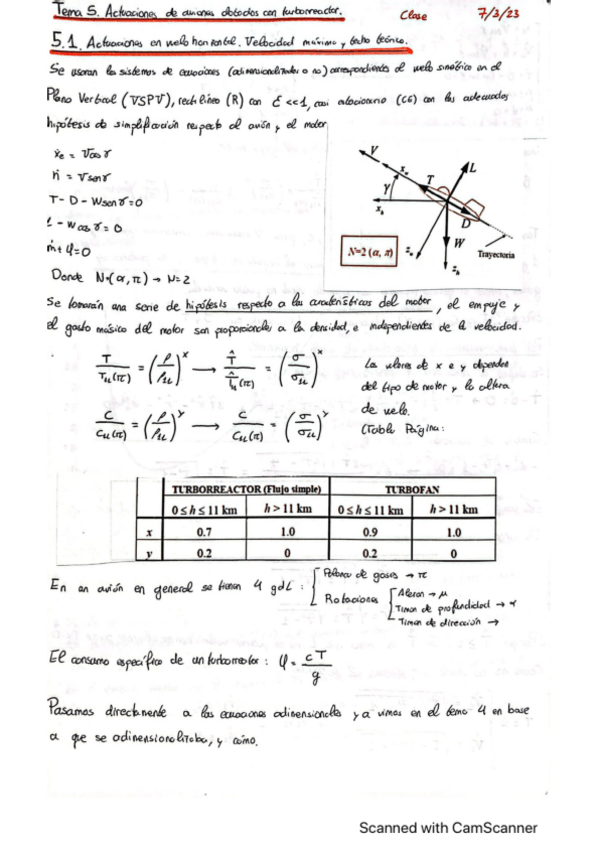 Tema 5. Actuaciones de aviones dotados con turborreactor. Clase 7/3/23
5.1. Actuaciones en vuelo horizontal. Velocidad máxima y techo teórico.
Se usaran los sistemas de ecuaciones (adimensionalizados o no) correspondientes al vuelo simétrico en el
Plano Vertical (VSPV), rectilíneo (R) con ε<<1, casi estacionario (CE) con las adecuadas
hipótesis de simplificación respecto al avión y el motor
ẋe = Vcosγ
ḣ = Vsenγ
T - D - Wsenγ = 0
L - Wcosγ = 0
ṁ + φ = 0
V
xw
L
T
γ
xh
D
N=2 (α, π)
W
Trayectoria
zw
zh
Donde N=(α, π) → N=2
Se tomarán una serie de hipótesis respecto a las características del motor, el empuje y
el gasto másico del motor son proporcionales a la densidad, e independientes de la velocidad.
T/Tu(π) = (ρ/ρu)^x → T̂/T̂u(π) = (σ/σu)^x
Los valores de x e y dependen
del tipo de motor y la altura
de vuelo.
(Tabla Página:
C/Cu(π) = (ρ/ρu)^y → C/Cu(π) = (σ/σu)^y
TURBORREACTOR (Flujo simple) TURBOFAN
0 ≤ h ≤ 11 km h > 11 km 0 ≤ h ≤ 11 km h > 11 km
x 0.7 1.0 0.9 1.0
y 0.2 0 0.2 0
En un avión en general se tienen 4 gdL : Palanca de gases → π
Rotaciones Aleron → μ
Timon de profundidad → α
Timon de dirección →
El consumo específico de un turborreactor : φ = cT/g
Pasamos directamente a las ecuaciones adimensionales ya vimos en el tema 4 en base
a que se adimensionalizaba, y cómo.
Scanned with CamScanner